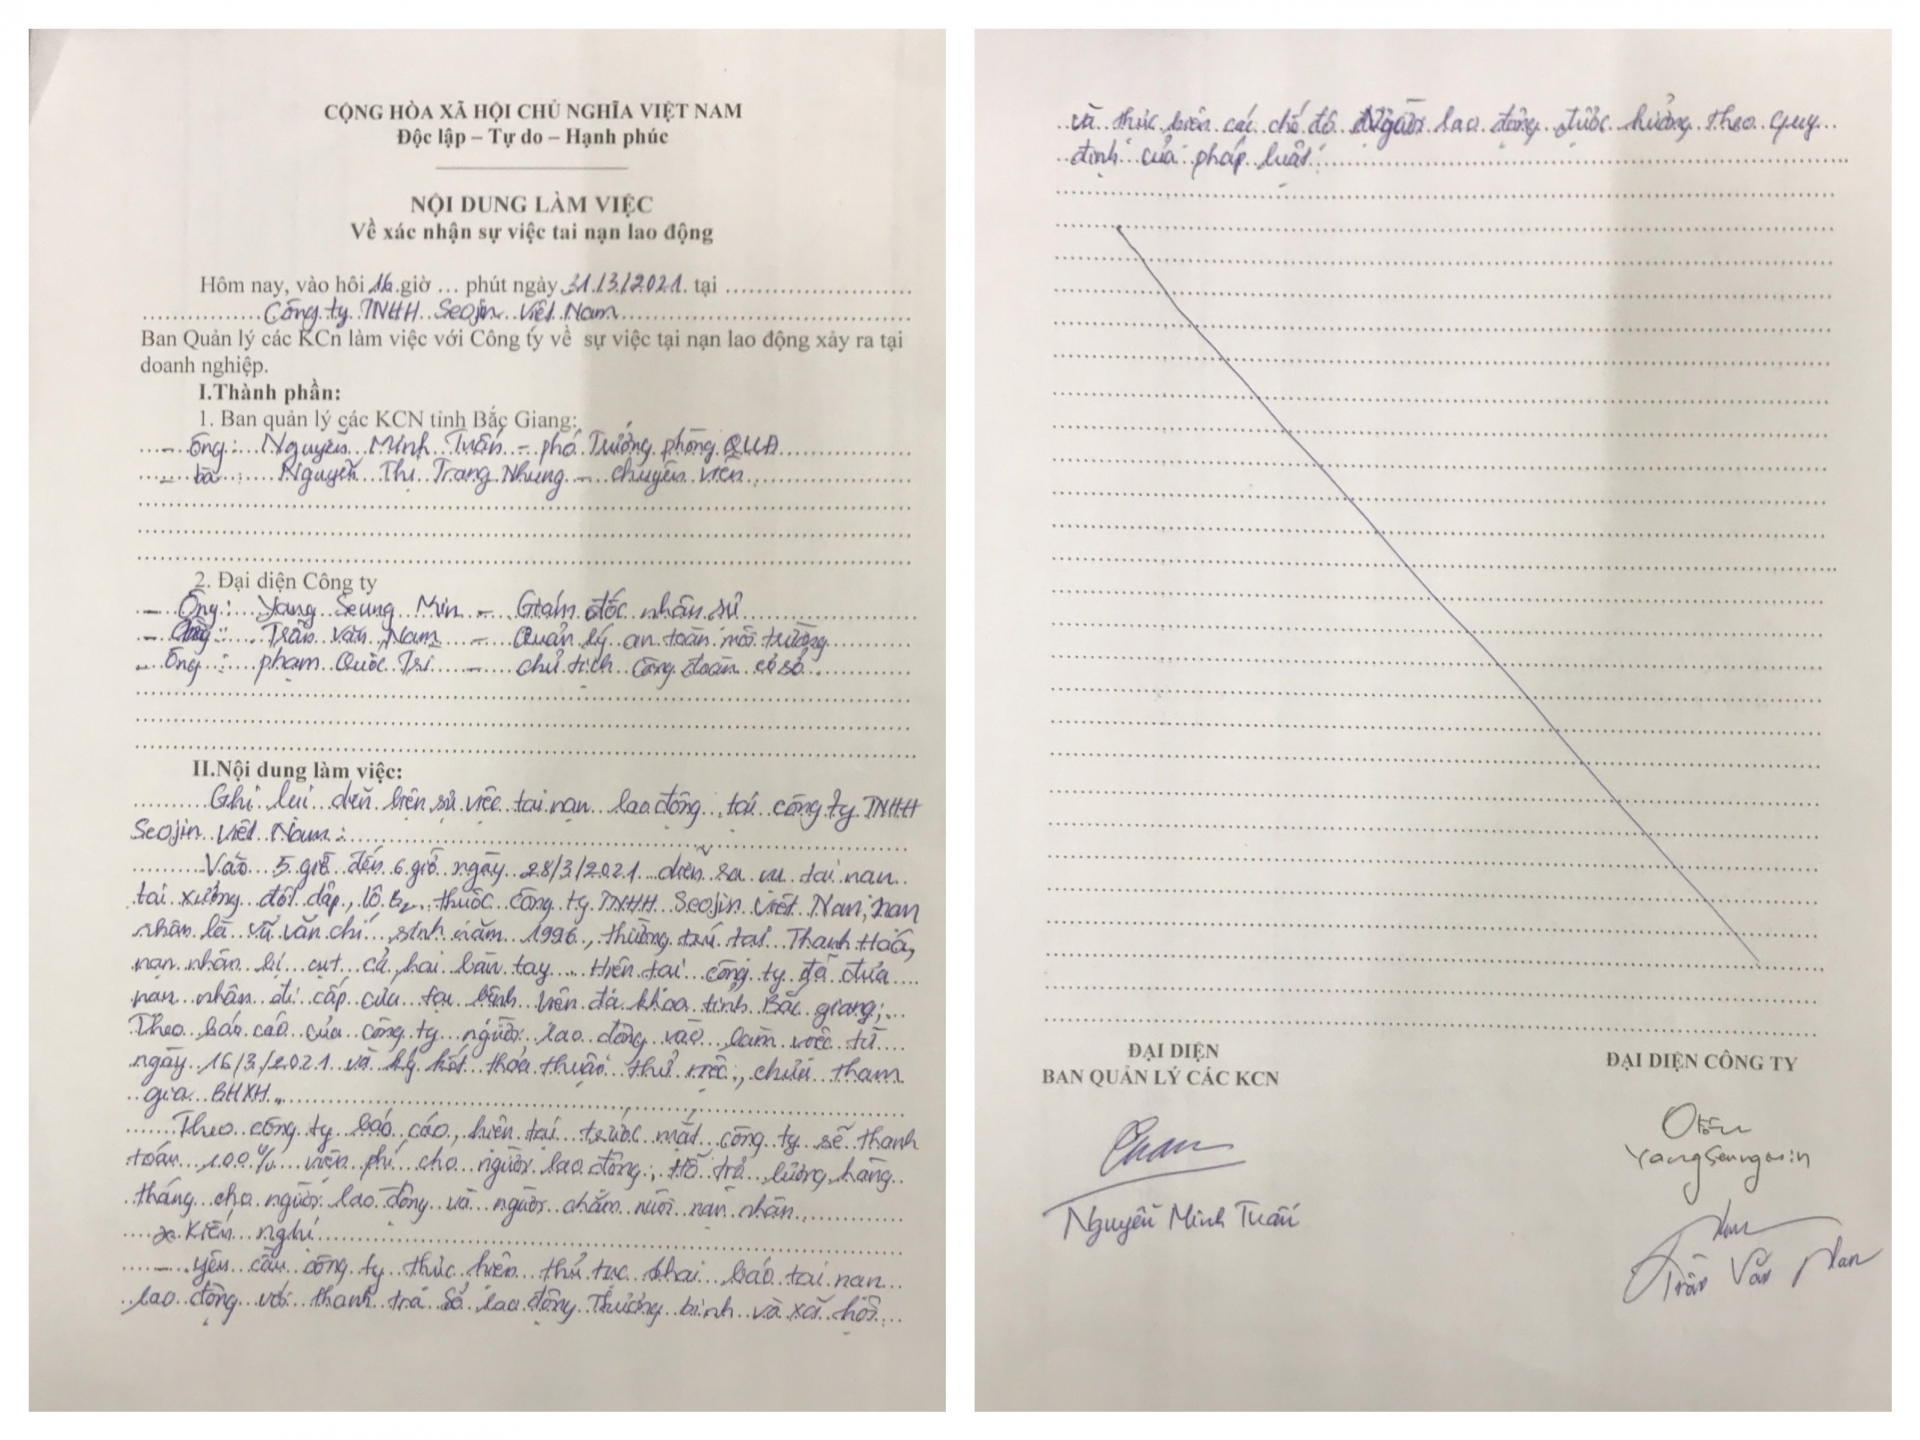 CỘNG HÒA XÃ HỘI CHỦ NGHĨA VIỆT NAM
Độc lập – Tự do – Hạnh phúc
NỘI DUNG LÀM VIỆC
Về xác nhận sự việc tai nạn lao động
Hôm nay, vào hồi 16 giờ ... phút ngày 31/3/2021 tại
Công ty TNHH Seojin Việt Nam
Ban Quản lý các KCn làm việc với Công ty về sự việc tại nạn lao động xảy ra tại
doanh nghiệp.
I.Thành phần:
1. Ban quản lý các KCN tỉnh Bắc Giang:
- Ông: Nguyễn Minh Tuấn - phó Trưởng phòng QLLĐ
- bà: Nguyễn Thị Trang Nhung - chuyên viên
2. Đại diện Công ty
- Ông: Yang Seung Min - Giám đốc nhân sự
- Ông: Trần Văn Nam - Quản lý an toàn môi trường
- Ông: phạm Quốc Trí - chủ tịch công đoàn cơ sở
II.Nội dung làm việc:
Ghi lại diễn biến sự việc tai nạn lao động tại công ty TNHH
Seojin Việt Nam:
Vào 5 giờ đến 6 giờ ngày 28/3/2021 diễn ra vụ tai nạn
tại xưởng đột dập, lô thuộc công ty TNHH Seojin Việt Nam, nạn
nhân là Vũ Văn Chí, sinh năm 1996, thường trú tại Thanh Hoá,
nạn nhân bị cụt cả hai bàn tay. Hiện tại công ty đã đưa
nạn nhân đi cấp cứu tại bệnh viện đa khoa tỉnh Bắc giang;
Theo báo cáo của công ty người lao động vào làm việc từ
ngày 16/3/2021 và ký kết thỏa thuận thử việc, chưa tham
gia BHXH.
Theo công ty báo cáo, hiện tại trước mắt công ty sẽ thanh
toán 100% viện phí cho người lao động, hỗ trợ lương hàng
tháng cho người lao động và người chăm nuôi nạn nhân
* Kiến nghị
- yêu cầu công ty thực hiện thủ tục khai báo tai nạn
lao động với thanh tra Sở lao động Thương binh và xã hội
và thực hiện các chế độ Người lao động được hưởng theo quy
định của pháp luật.
ĐẠI DIỆN
BAN QUẢN LÝ CÁC KCN
Nguyễn Minh Tuấn
ĐẠI DIỆN CÔNG TY
Yang Seungmin
Trần Văn Nam